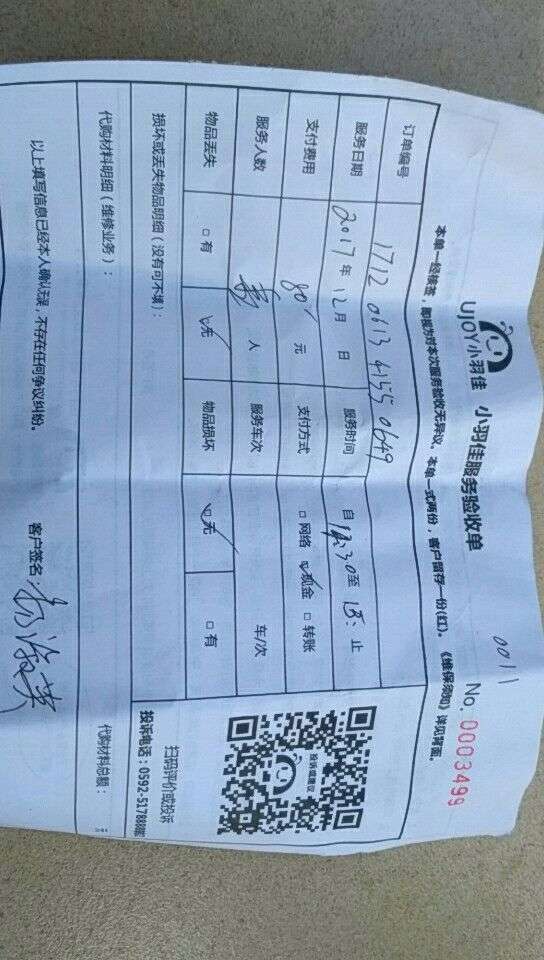 0011
UJOY小羽佳 小羽佳服务验收单 No. 0003499
本单一经核答，即视为对本次服务验收无异议。本单一式两份，客户留存一份(红)。《维保须知》详见背面。
订单编号 1712 0613 4155 0649
服务日期 2017年12月 日 服务时间 自 :30至 : 止
支付费用 80元 支付方式 □网络 ☑现金 □转账
服务人数 人 服务车次 车/次
物品丢失 □有 ☑无 物品损坏 ☑无 □有
损坏或丢失物品明细（没有可不填）：
投诉或建议
扫码评价或投诉
投诉电话：0592-517888
代购材料明细（维修业务）： 代购材料总额：
以上填写信息已经本人确认无误，不存在任何争议纠纷。 客户签名：